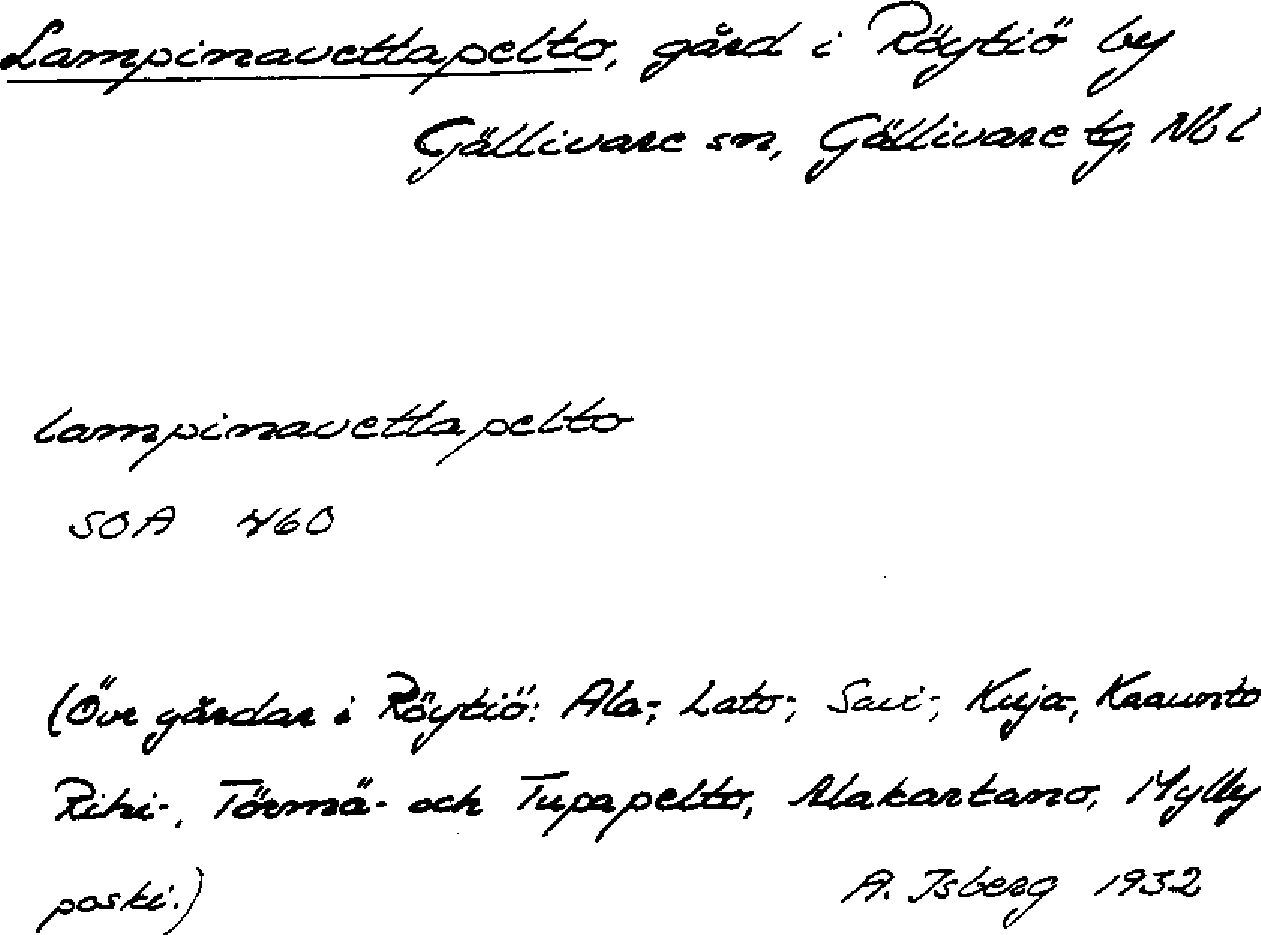 Lampinavettapelto, gård i Röytiö by
Gällivare sn, Gällivare tg, Nbl
lampinavettapelto
SOA 460
(Övr gårdar i Röytiö: Ala-, Lato-, Savi-, Kuja-,
Riihi-, Törmä- och Tupapelto, Alakartano, Mylly
poski.)
A. Isberg 1932